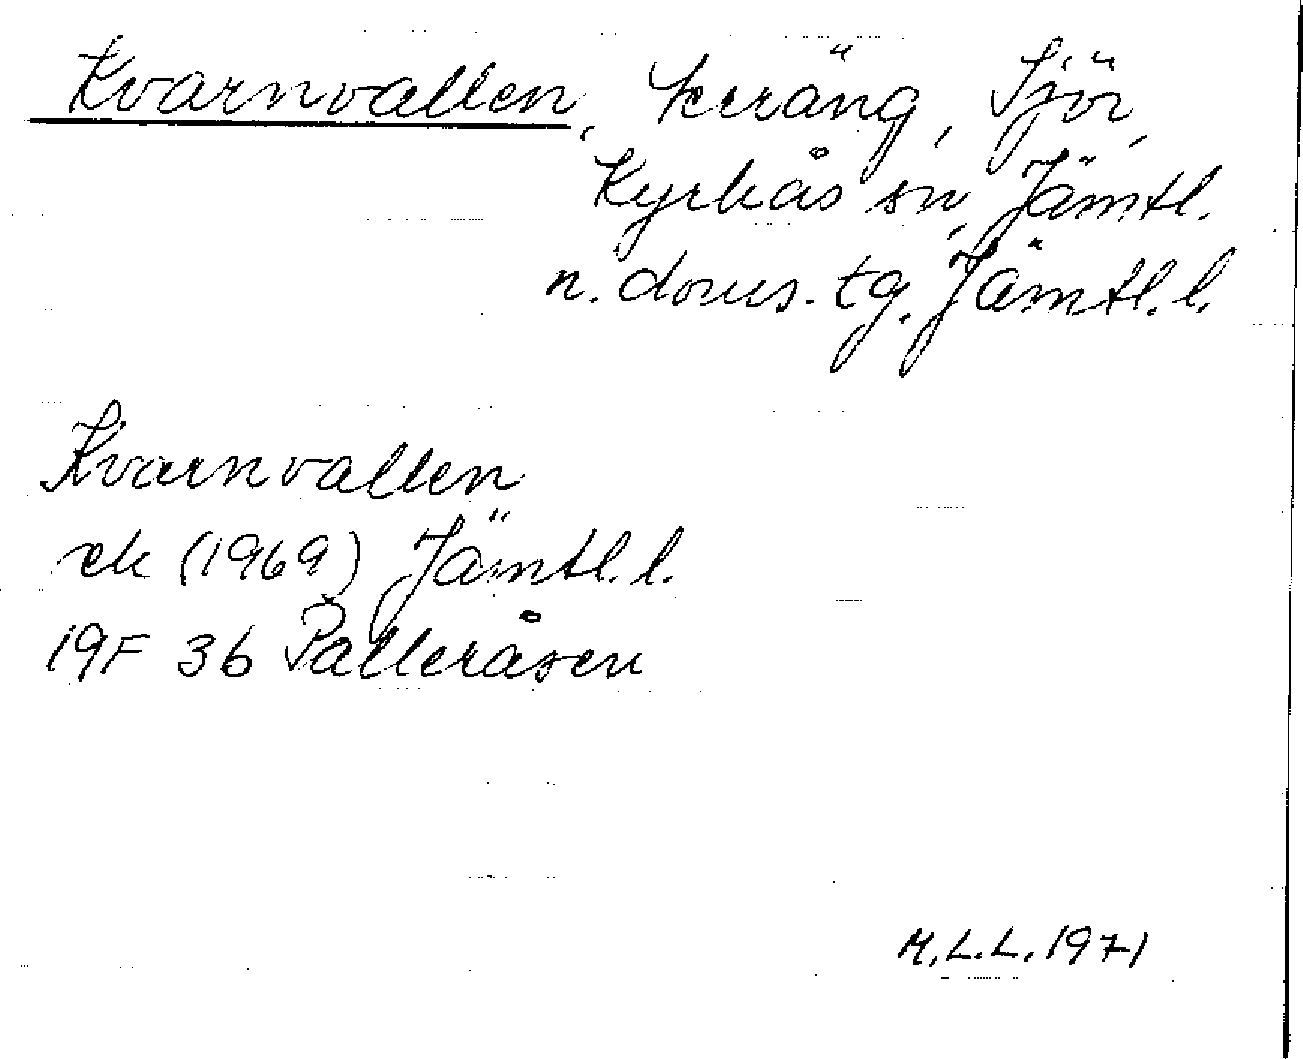 Kvarnvallen, terräng, Sjör,
Kyrkås sn, Jämtl.
n. doms. tg, Jämtl. l.
Kvarnvallen
ek (1969) Jämtl. l.
19F 3b Pålleråsen
M.L.L. 1971